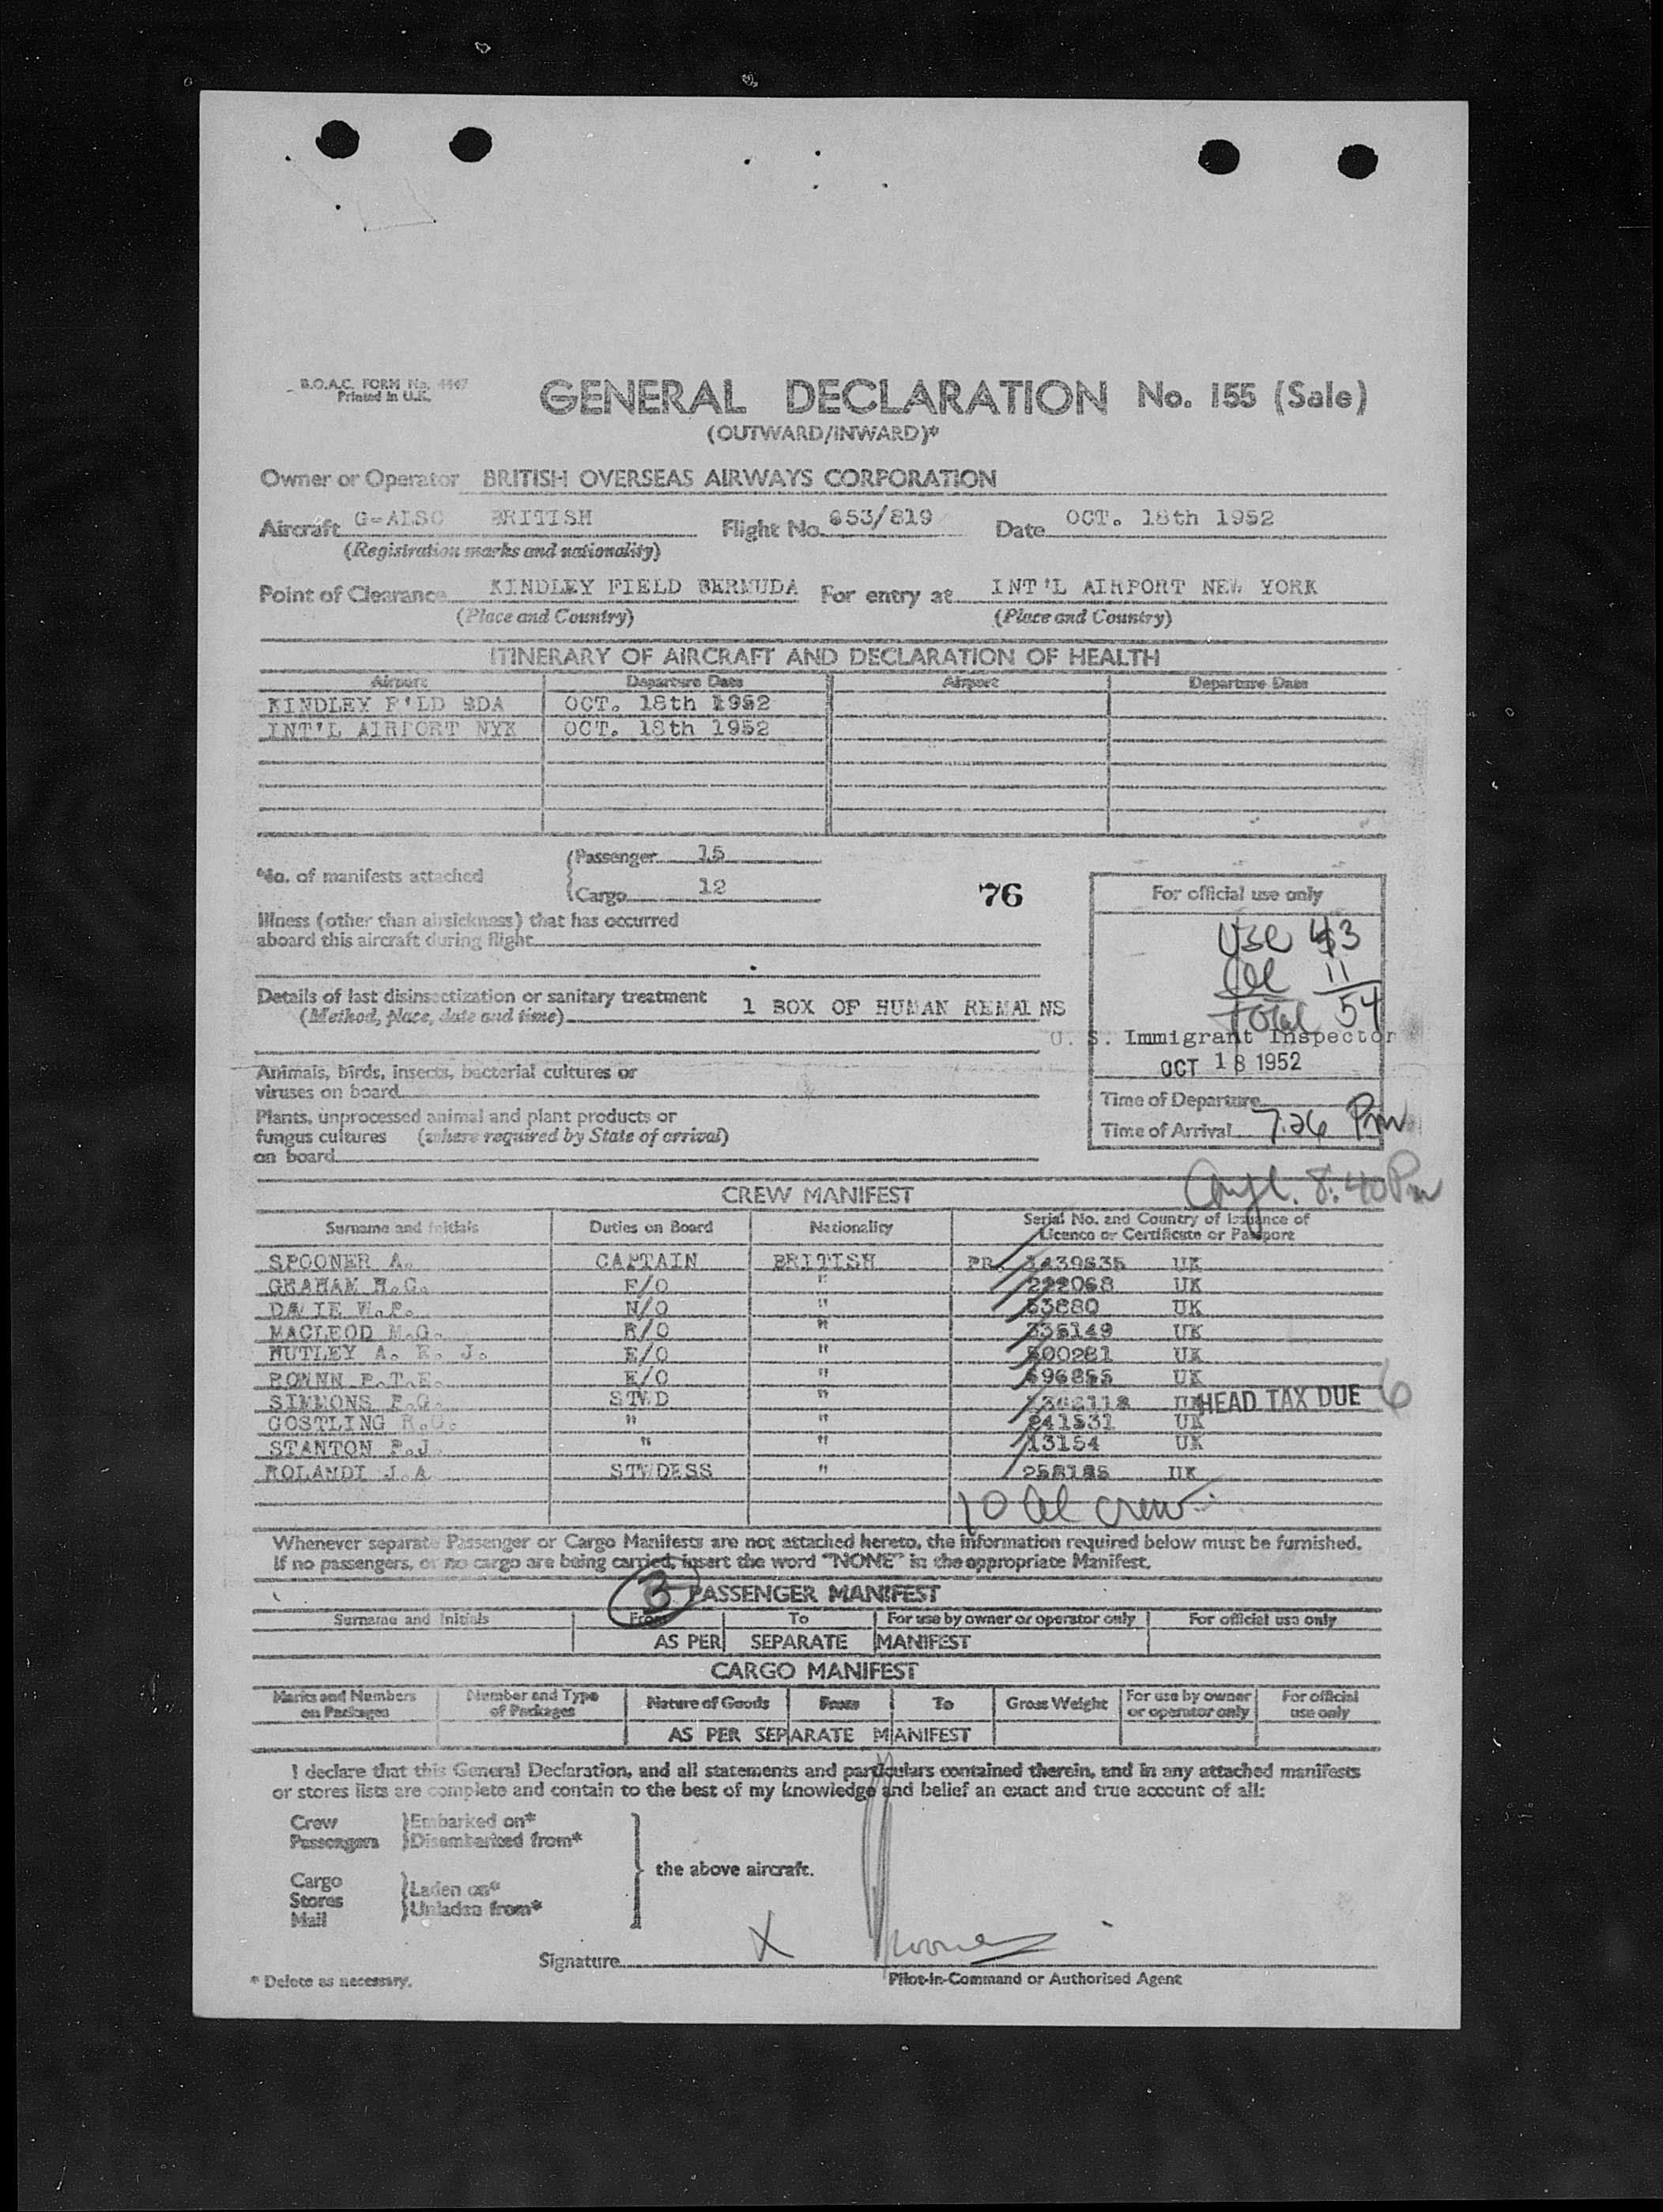 B.O.A.C. FORM No. 4447
Printed in U.K.
GENERAL DECLARATION No. 155 (Sale)
(OUTWARD/INWARD)*
Owner or Operator BRITISH OVERSEAS AIRWAYS CORPORATION
Aircraft G-ALSC BRITISH Flight No. 853/819 Date OCT. 18th 1952
(Registration marks and nationality)
Point of Clearance KINDLEY FIELD BERMUDA For entry at INT'L AIRPORT NEW YORK
(Place and Country) (Place and Country)
ITINERARY OF AIRCRAFT AND DECLARATION OF HEALTH
Airport Departure Date Airport Departure Date
KINDLEY F'LD BDA OCT. 18th 1952
INT'L AIRPORT NYK OCT. 18th 1952
*No. of manifests attached
Passenger 15
Cargo 12
76
Illness (other than airsickness) that has occurred
aboard this aircraft during flight
Details of last disinsectization or sanitary treatment 1 BOX OF HUMAN REMAINS
(Method, place, date and time)
Animals, birds, insects, bacterial cultures or
viruses on board
Plants, unprocessed animal and plant products or
fungus cultures (where required by State of arrival)
on board
For official use only
USC 43
11
Total 54
U. S. Immigrant Inspector
OCT 18 1952
Time of Departure
Time of Arrival 7.26 Pm
8:40 Pm
CREW MANIFEST
Surname and Initials Duties on Board Nationality Serial No. and Country of Issuance of
Licence or Certificate or Passport
SPOONER A. CAPTAIN BRITISH PR. 1439635 UK
GRAHAM H.G. F/O " 222068 UK
DAVIE W.P. N/O " 53880 UK
MACLEOD M.G. R/O " 335149 UK
HUTLEY A. E. J. E/O " 500281 UK
E/O " 696855 UK
SIMMONS F.G. STWD " UK HEAD TAX DUE 6
GOSTLING R.G. " " 241531 UK
STANTON P.J. " " 13154 UK
ROLANDI J.A STWDESS " 258185 UK
10 al crew
Whenever separate Passenger or Cargo Manifests are not attached hereto, the information required below must be furnished.
If no passengers, or no cargo are being carried, insert the word "NONE" in the appropriate Manifest.
3 PASSENGER MANIFEST
Surname and Initials From To For use by owner or operator only For official use only
AS PER SEPARATE MANIFEST
CARGO MANIFEST
Marks and Numbers on Packages Number and Type of Packages Nature of Goods From To Gross Weight For use by owner or operator only For official use only
AS PER SEPARATE MANIFEST
I declare that this General Declaration, and all statements and particulars contained therein, and in any attached manifests
or stores lists are complete and contain to the best of my knowledge and belief an exact and true account of all:
Crew Embarked on*
Passengers Disembarked from*
the above aircraft.
Cargo
Stores Laden on*
Mail Unladen from*
Signature X Spooner
* Delete as necessary. Pilot-in-Command or Authorised Agent